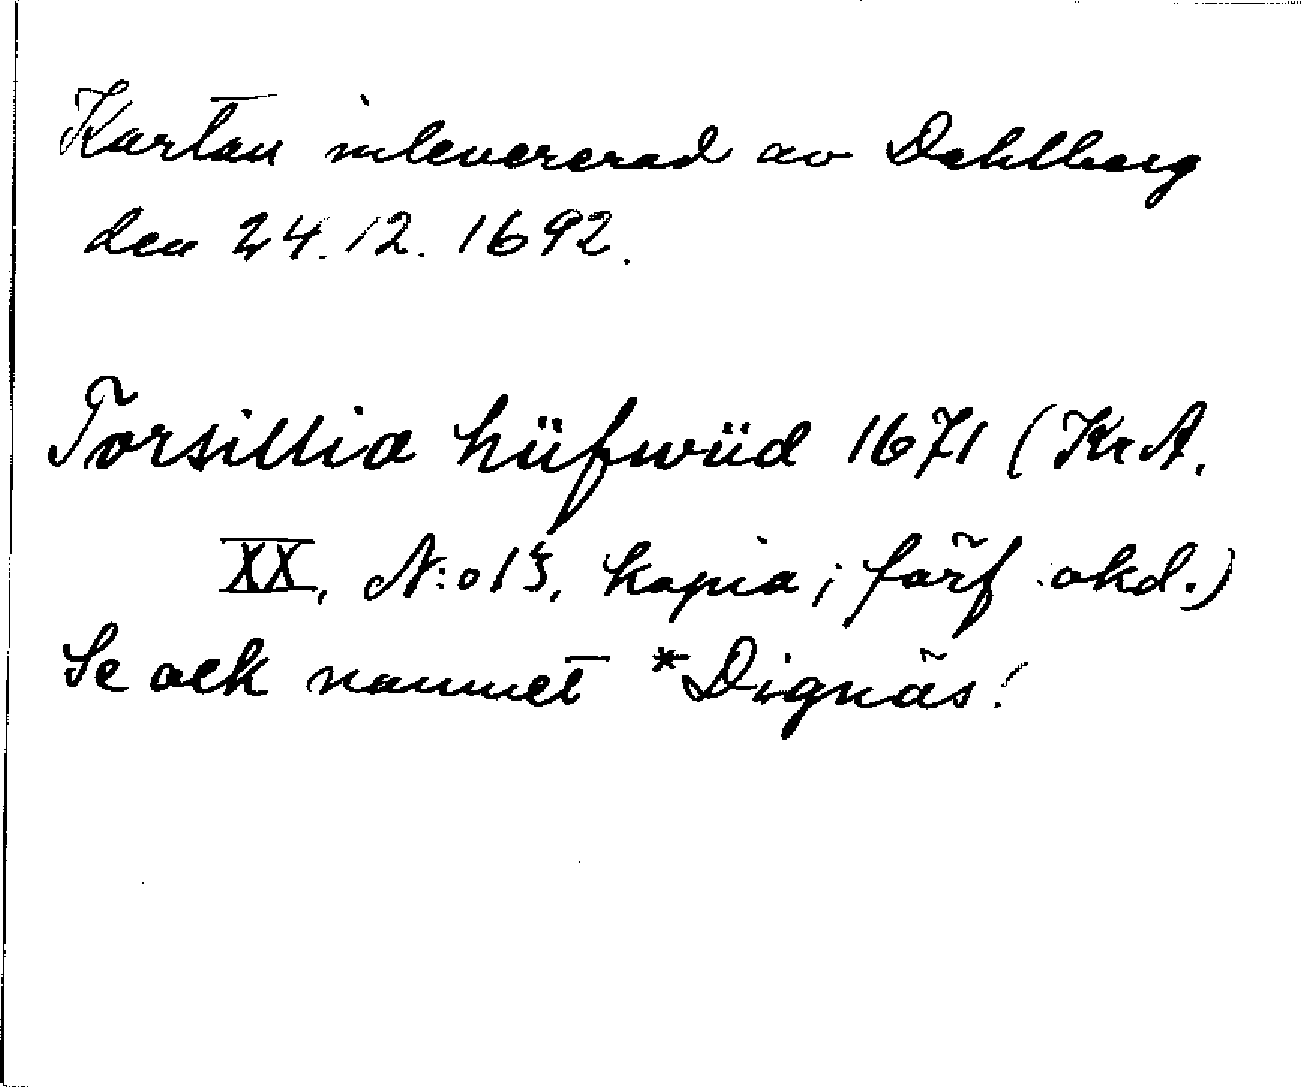 Kartan inlevererad av Dahlberg
den 24.12.1692.
Torsillia hüfwüd 1671 (KrA.
XX, N:o 13, kopia; förf. okd.)
Se ock namnet *Dignäs!